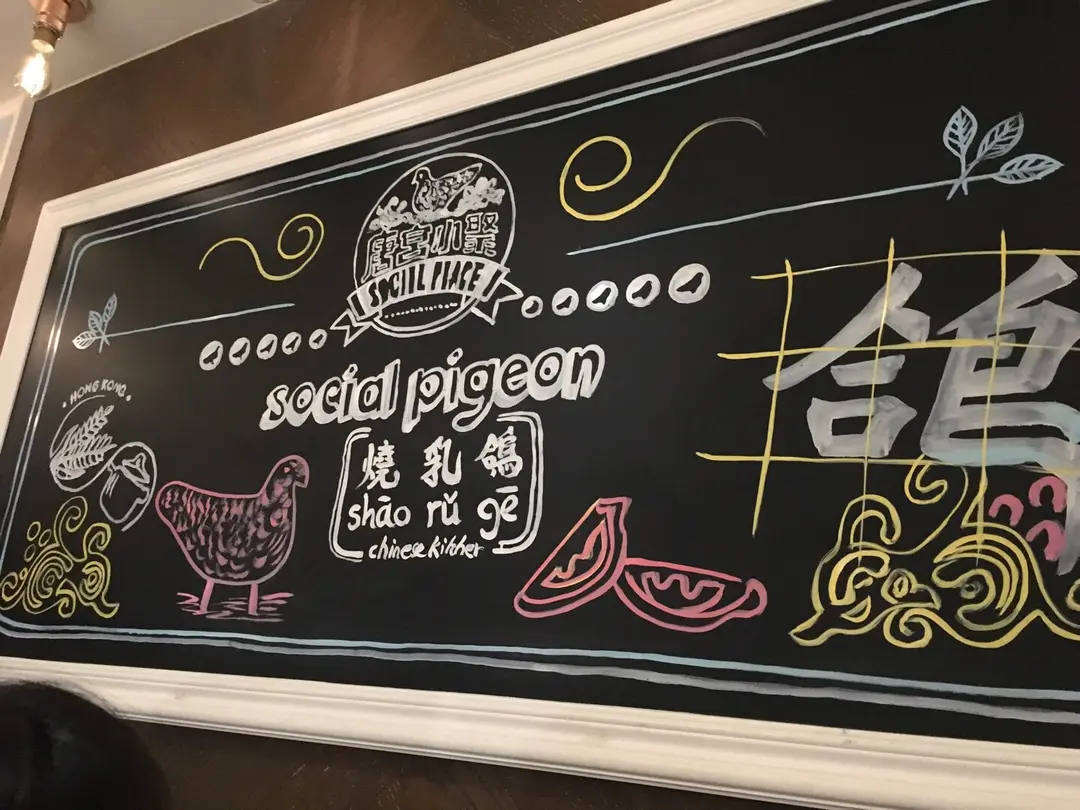 唐宮小聚
SOCIAL PLACE
social pigeon
燒乳鴿
shāo rǔ gē
chinese kitchen
• HONG KONG •
鴿